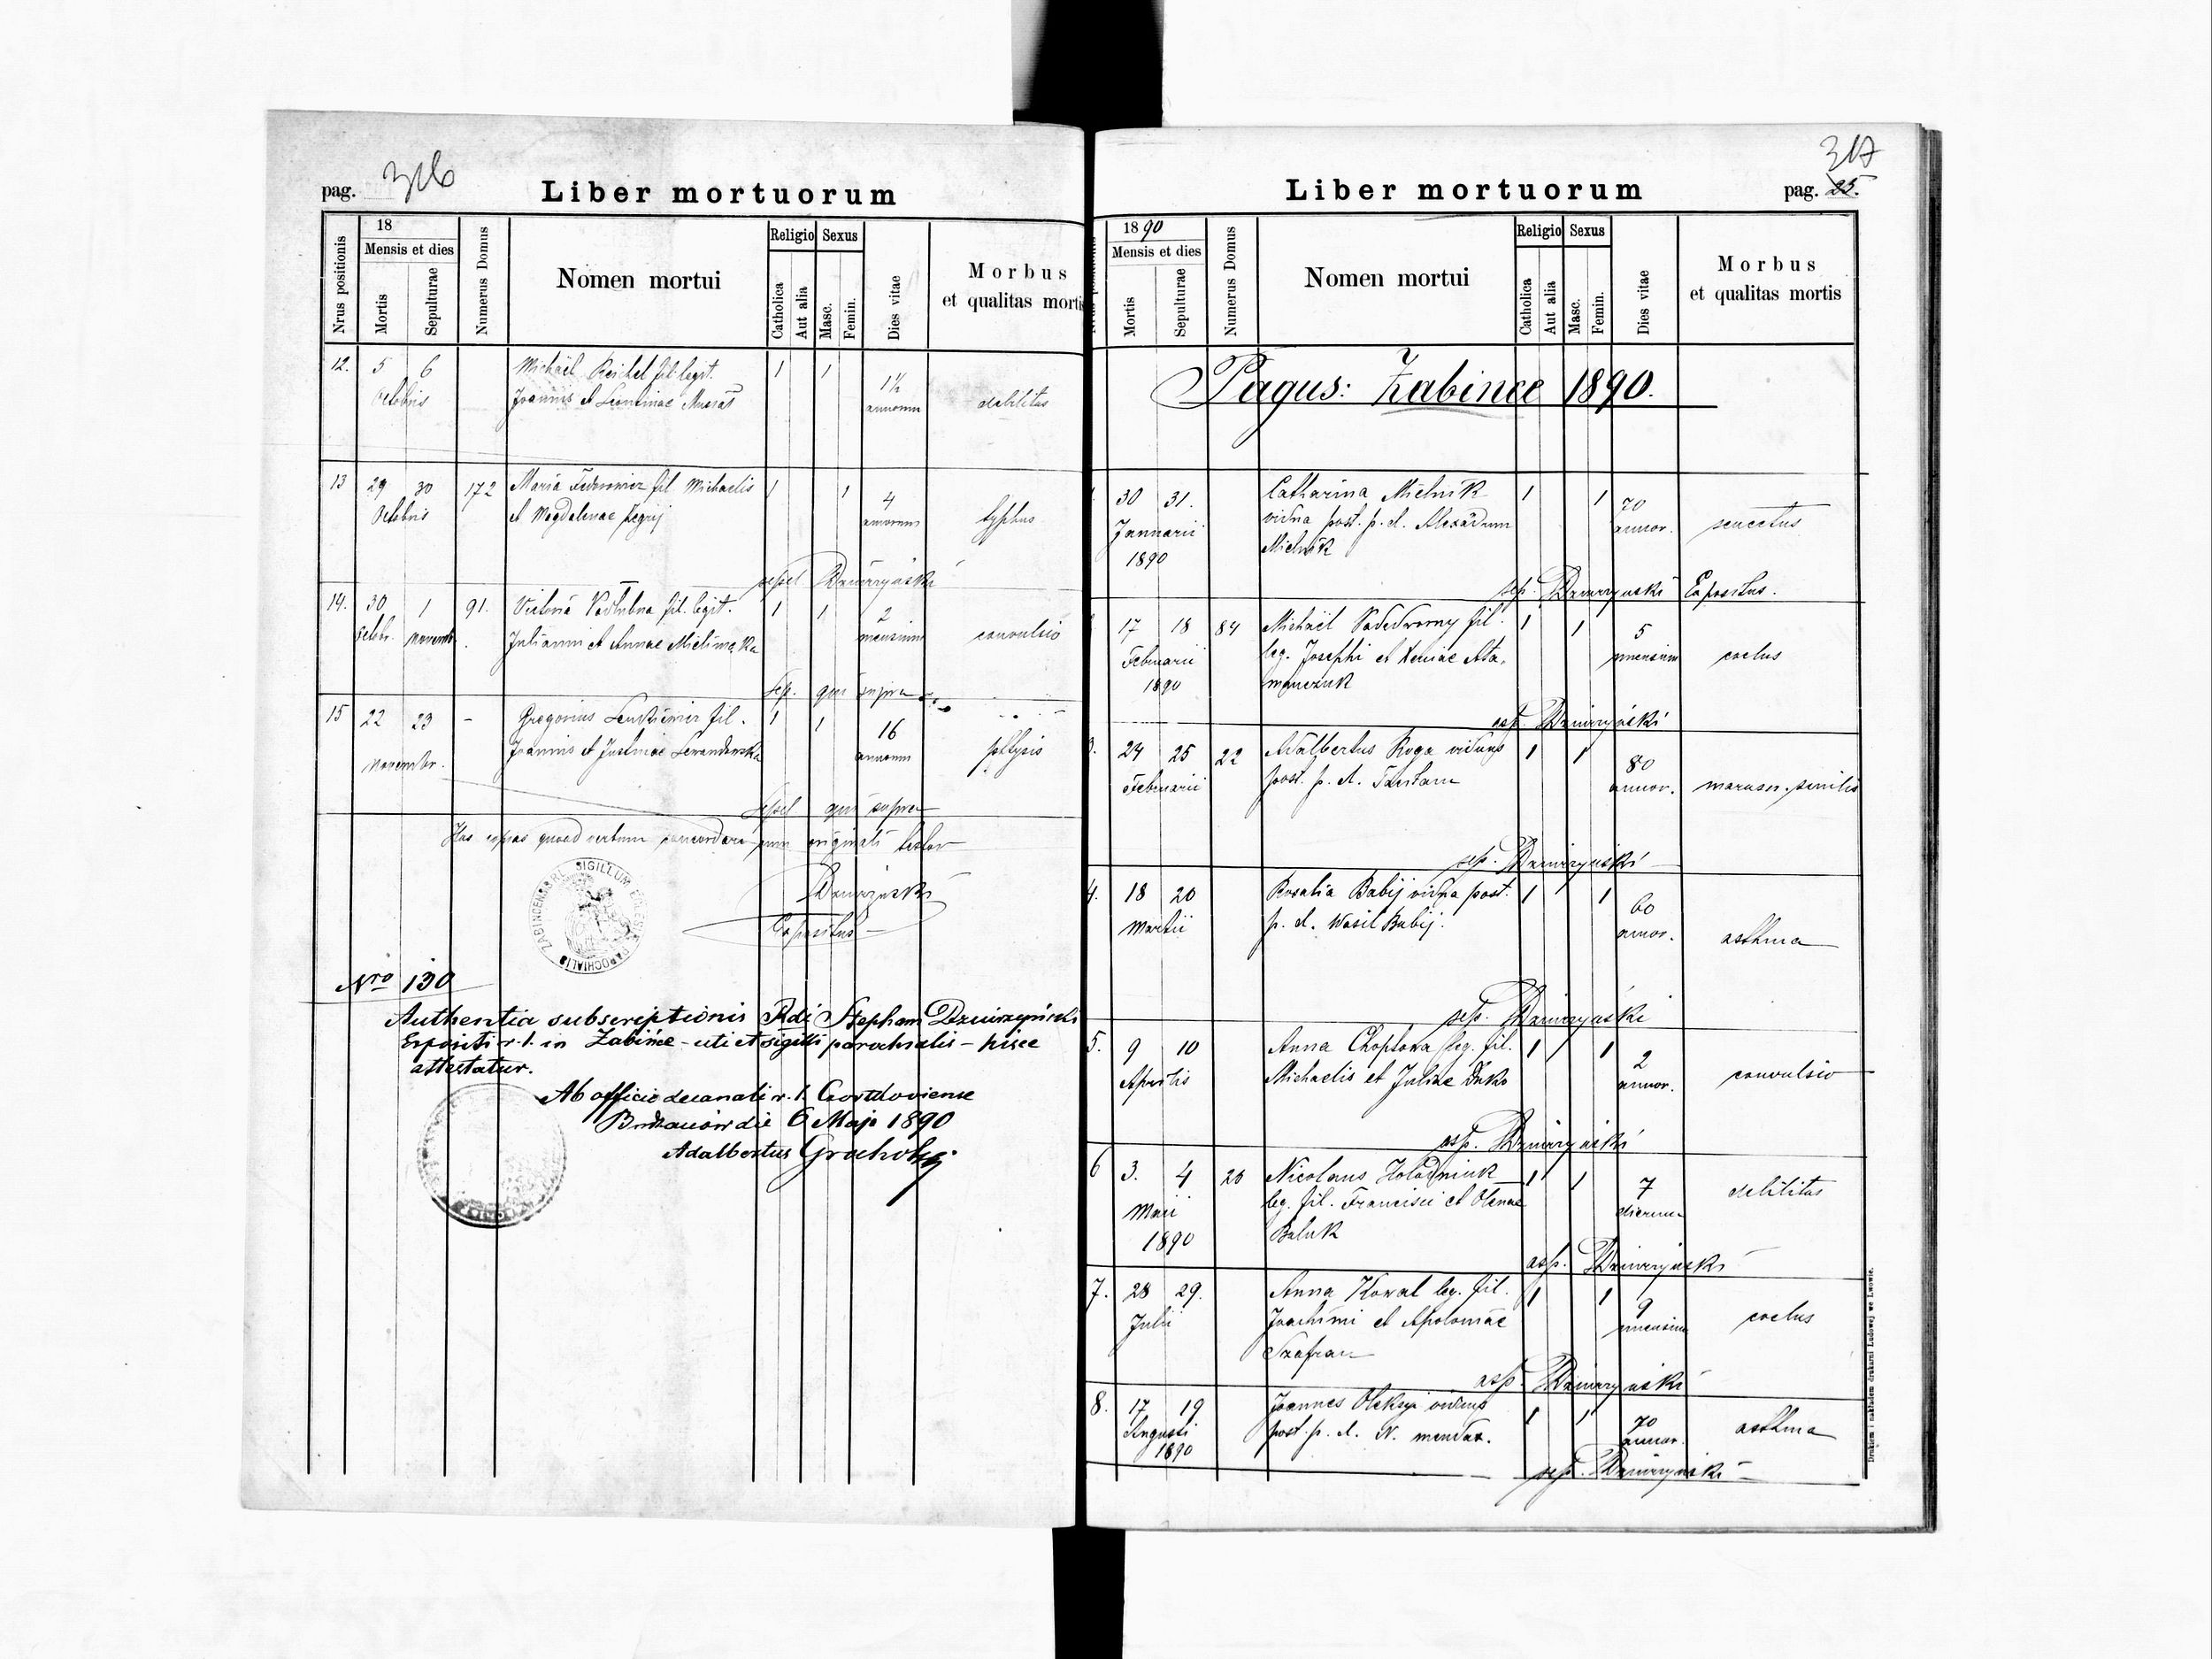 pag. 316
Liber mortuorum
18
Mensis et dies
Nrus positionis
Mortis
Sepulturae
Numerus Domus
Nomen mortui
Religio
Sexus
Catholica
Aut alia
Masc.
Femin.
Dies vitae
Morbus
et qualitas mortis
12. 5 6 Michaël Reichel fil. legit. 1 1 1½
Octobris Joannis et annorum debilitas
13 29 30 172 Maria fil. Michaelis 1 1 4
Octobris et Magdalenae annorum typhus
sepel Dzwirzyński
14. 30 1 91. fil. legit. 1 1 2
Octobr. Novembr. Julianni et Annae mensium convulsio
sep. qui supra
15 22 23 - Gregorius fil. 1 1 16
Novembr. Joannis et Justinae Lewandowska annorum phtysis
sepel qui supra
Has copias quoad verbum concordare cum originali testor
Dzwirzyński
Expositus
SIGILLUM PAROCHIALIS ZABINCENSIS
Nro 130
Authentia subscriptionis Rdi Stephani Dzwirzyński
Expositi r. l. in Zabińce - uti et sigilli parochialis - hisce
attestatur.
Ab officio decanali r. l.
die 6 Maji 1890
Adalbertus
317
Liber mortuorum
pag. 25.
1890
Mensis et dies
Mortis
Sepulturae
Numerus Domus
Nomen mortui
Religio
Sexus
Catholica
Aut alia
Masc.
Femin.
Dies vitae
Morbus
et qualitas mortis
Pagus: Zabince 1890.
30 31. Catharina Mielnik 1 1 70
Januarii vidua post. p. d. annor. senectus
1890 Mielnik
sep. Dzwirzyński Expositus.
17 18 84 Michaël fil. 1 1 5
Februarii leg. Josephi et Xeniae Ata- mensium
1890 manczuk
sep. Dzwirzyński
24 25 22 Adalbertus Roga viduus 1 1 80
Februarii post. p. d. annor. marasm. senilis
sep. Dzwirzyński
4. 18 20 Rosalia Babij vidua post. 1 1 60
Martii p. d. Wasil Babij. annor. asthma
sep. Dzwirzyński
5. 9 10 Anna leg. fil. 1 1 2
Aprilis Michaelis et Juliae annor. convulsio
sep. Dzwirzyński
6 3. 4 26 Nicolaus 1 1 7 debilitas
Maii leg. fil. Francisci et Olenae dierum
1890 Baluk
sep. Dzwirzyński
7. 28 29. Anna Kowal leg. fil. 1 1 9
Julii Joachimi et Apoloniae mensium
Szafran
sep. Dzwirzyński
8. 17 19 Joannes Oleksyn viduus 1 1 70 asthma
Augusti post. p. d. N. annor.
1890
sep. Dzwirzyński
Drukiem i nakładem drukarni Ludowej we Lwowie.